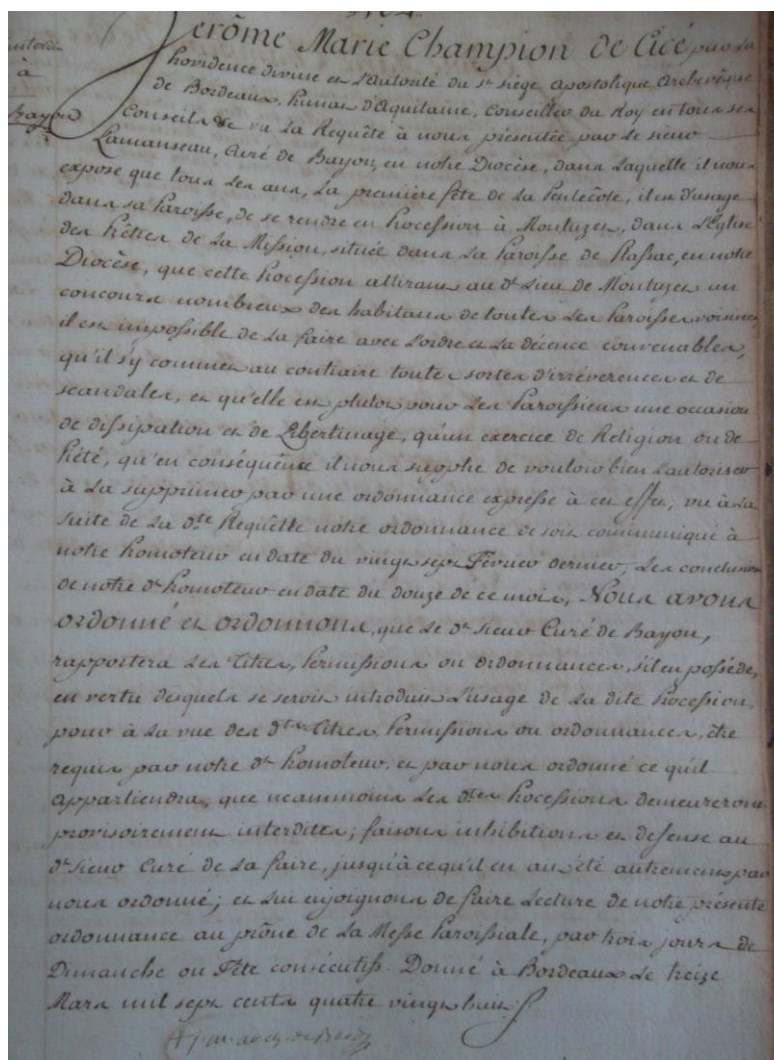 interdite
à
Bayon
Jerôme Marie Champion de Cicé par la
Providence divine et l'autorité du st siège apostolique Archevêque
de Bordeaux, Primat d'Aquitaine, Conseiller du Roy en tous ses
Conseils &c vu La Requête à nous présentée par le sieur
Lamanseau, Curé de Bayon, en notre Diocèse, dans Laquelle il nous
expose que tous les ans, La première fête de la Pentecôte, il est d'usage
dans sa Paroisse, de se rendre en Procession à Montuzet, dans L'Eglise
des Prêtres de La Mission, située dans La Paroisse de Plassac, en notre
Diocèse, que cette Procession attirant au dt Lieu de Montuzet un
concours nombreux des habitans de toutes Les Paroisses voisines,
il est impossible de La faire avec L'ordre et La décence convenables,
qu'il s'y commet au contraire toutes sortes d'irrévérences et de
scandales, et qu'elle est plutot pour Les Paroissiens une occasion
de dissipation et de Libertinage, qu'un exercice de Religion ou de
Piété, qu'en conséquence il nous supplie de vouloir bien L'autoriser
à La supprimer par une ordonnance expresse à cet effet, vu à La
suite de La dte Requête notre ordonnance de soit communiqué à
notre Promoteur en date du vingt sept Février dernier, Les conclusions
de notre dt Promoteur en date du douze de ce mois, Nous avons
ordonné et ordonnons, que Le dt sieur Curé de Bayon,
rapportera Les Titres, Permissions ou ordonnances, s'il en possède,
en vertu desquels se seroit introduit L'usage de La dite Procession,
pour à La vue des dts Titres, Permissions ou ordonnances, être
requis par notre dt Promoteur, et par nous ordonné ce qu'il
appartiendra, que neammoins Les dtes Processions demeureront
provisoirement interdites; faisons inhibitions et défense au
dt sieur Curé de La faire, jusqu'à ce qu'il en ait été autrement par
nous ordonné; et Lui enjoignons de faire Lecture de notre présente
ordonnance au prône de La Messe Paroissiale, par trois jours de
Dimanche ou Fête consécutifs. Donné à Bordeaux Le treize
Mars mil sept cents quatre vingt huit